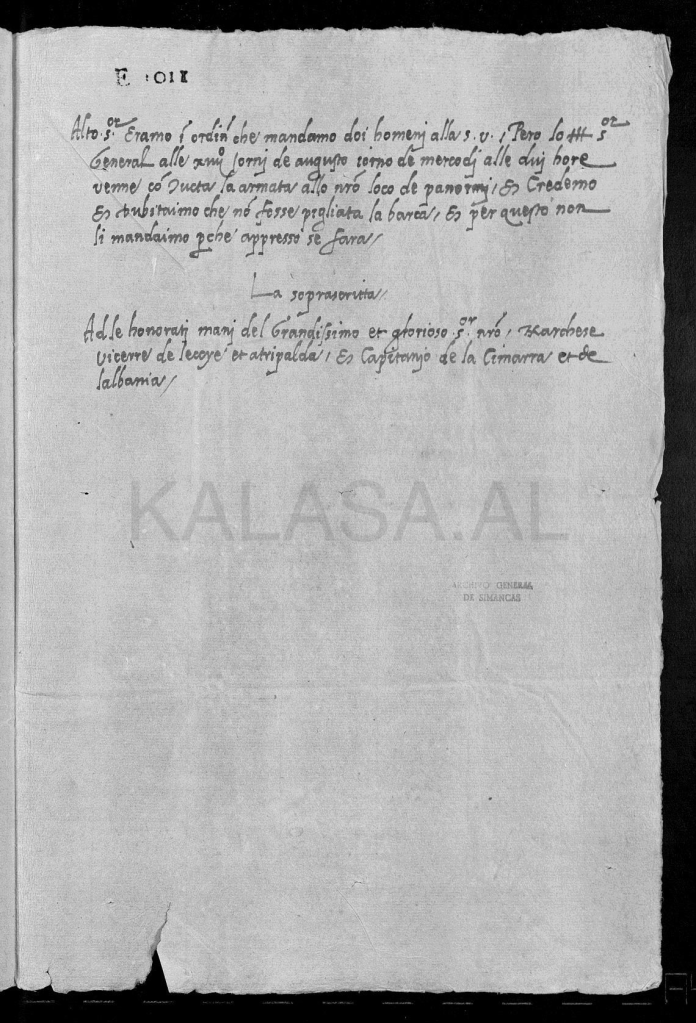 E 1011
Alto s.or Eramo ĩ ordiñ che mandamo doi homenj alla s. v. , Pero lo Ill s.or
General alle xiiij Jornj de augusto iorno de mercodj alle duj hore
venne cõ tucta la armata allo nrõ loco de panormj, et Credemo
et dubitaimo che nõ fosse pigliata la barca, et per questo non
li mandaimo pche appresso se fara /
La soprascritta /
Ad le honoratj manj del Grandissimo et glorioso s.or nrõ, Marchese
vicerre de lecoye et atripalda, et Capitanjo de la Cimarra et de
lalbania /
KALASA.AL
ARCHIVO GENERAL
DE SIMANCAS